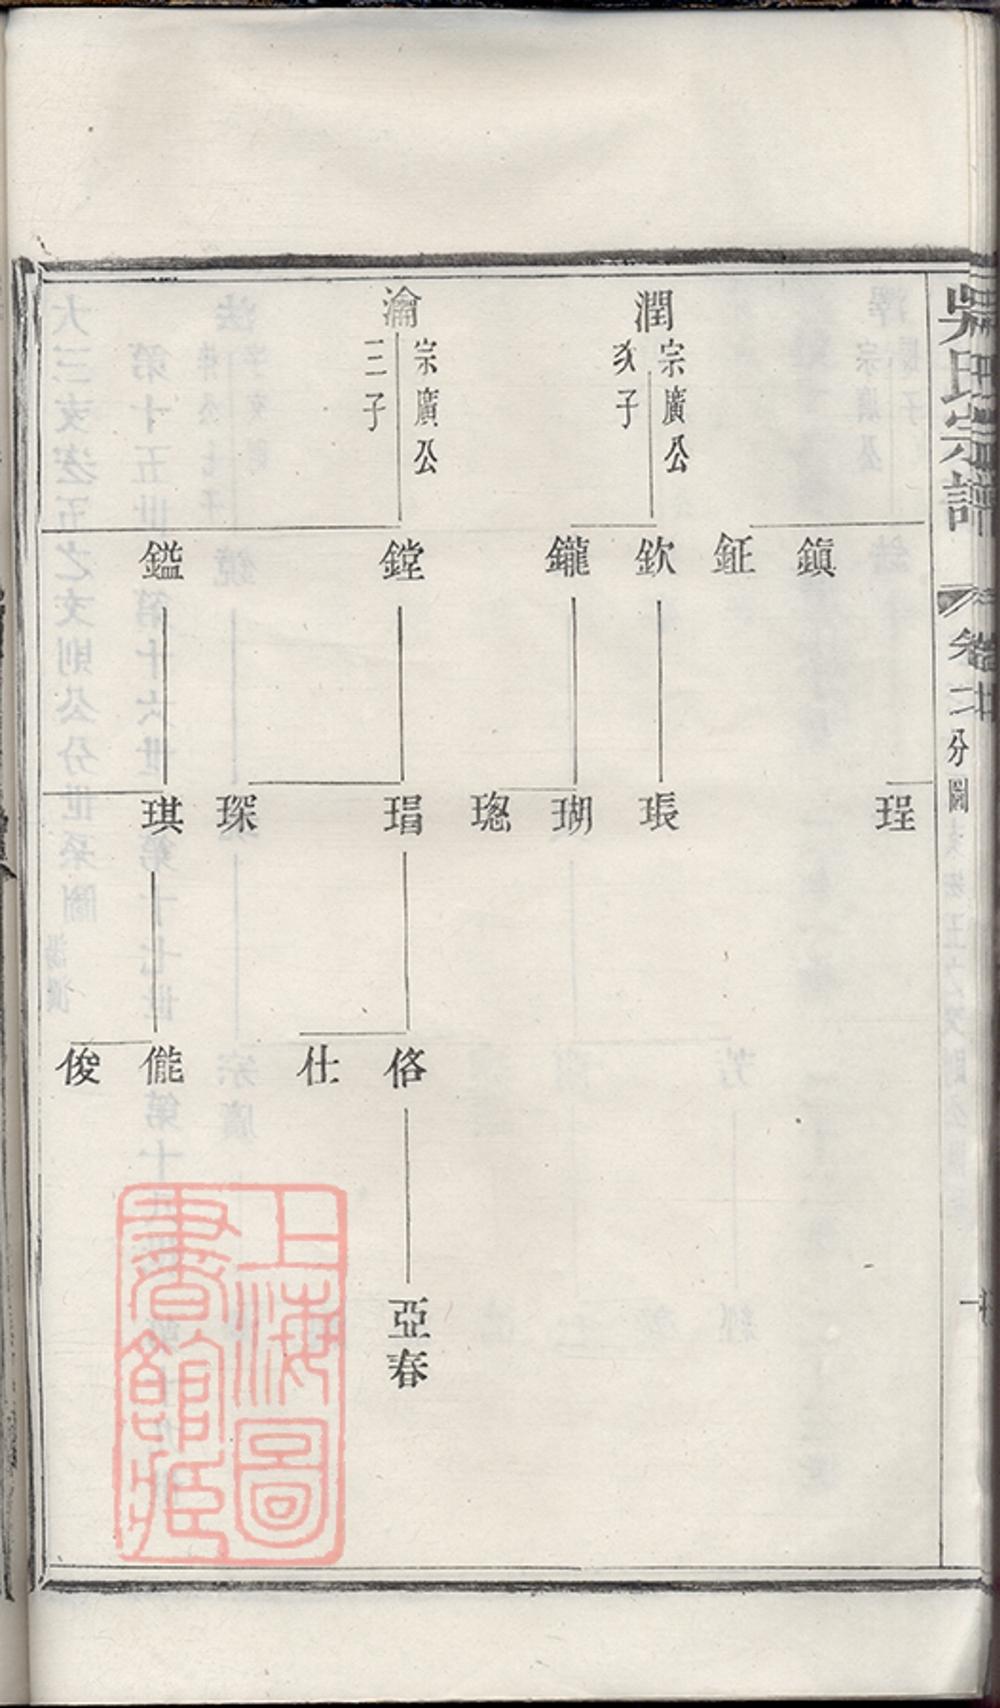 吳氏宗譜
卷廿二
分圖
潤
宗廣公
次子
瀹
宗廣公
三子
鎮
鉦
欽
鑨
鏜
鎰
珵
瑚
琩
琛
琪
佲
仕
俊
亞春
上海圖
書館藏